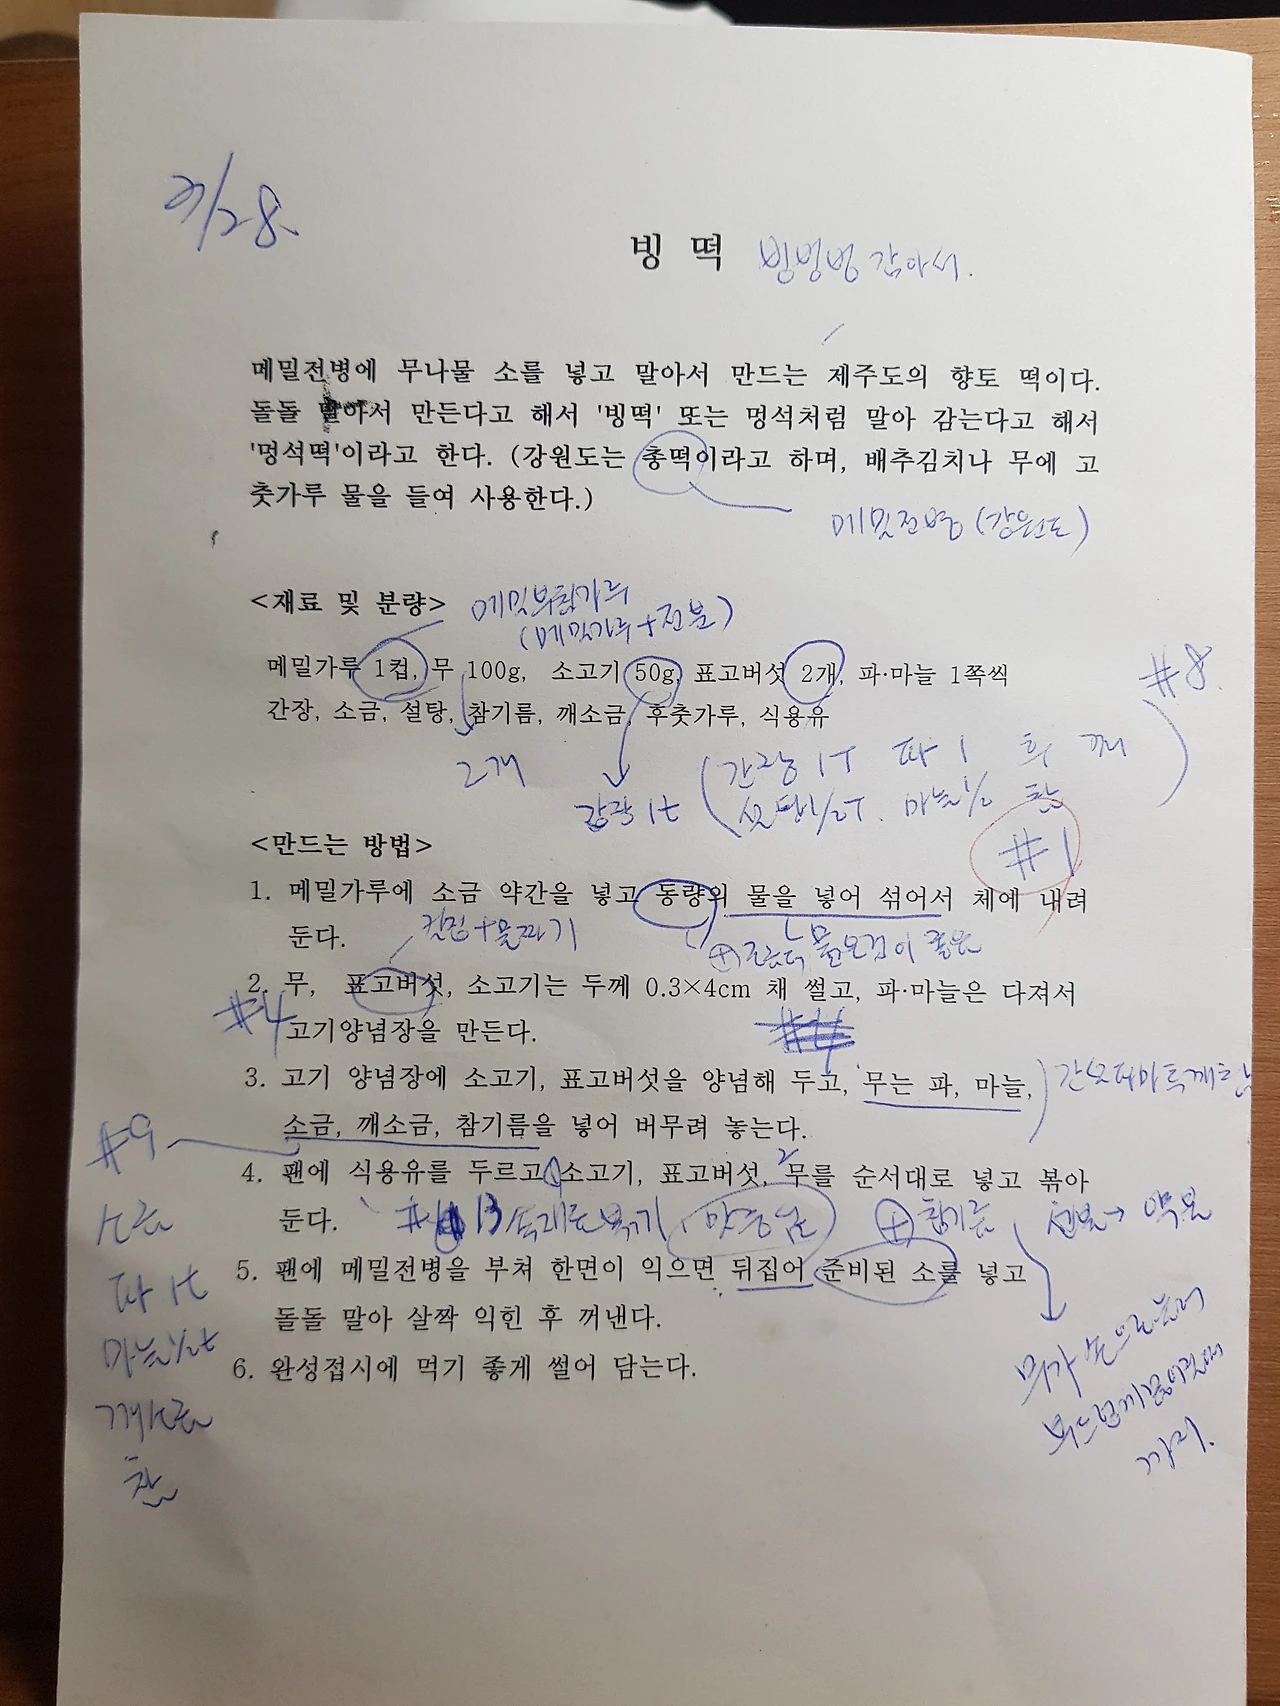 /28.
빙 떡 빙빙빙 감아서.
메밀전병에 무나물 소를 넣고 말아서 만드는 제주도의 향토 떡이다.
돌돌 말아서 만든다고 해서 '빙떡' 또는 멍석처럼 말아 감는다고 해서
'멍석떡'이라고 한다. (강원도는 총떡이라고 하며, 배추김치나 무에 고
춧가루 물을 들여 사용한다.)
메밀전병 (강원도)
<재료 및 분량> 메밀부침가루
(메밀가루+전분)
메밀가루 1컵, 무 100g, 소고기 50g, 표고버섯 2개, 파·마늘 1쪽씩
#8.
간장, 소금, 설탕, 참기름, 깨소금, 후춧가루, 식용유
2개
(간장 1T 파 1 후 깨
간장 1t 설탕 1/2T. 마늘 1/2 참)
<만드는 방법>
#1
1. 메밀가루에 소금 약간을 넣고 동량의 물을 넣어 섞어서 체에 내려
둔다.
2. 무, 표고버섯, 소고기는 두께 0.3×4cm 채 썰고, 파·마늘은 다져서
#4 고기양념장을 만든다.
3. 고기 양념장에 소고기, 표고버섯을 양념해 두고, 무는 파, 마늘,
소금, 깨소금, 참기름을 넣어 버무려 놓는다.
#9
4. 팬에 식용유를 두르고 소고기, 표고버섯, 무를 순서대로 넣고 볶아
둔다.
⊕참기름
소금
5. 팬에 메밀전병을 부쳐 한면이 익으면 뒤집어 준비된 소를 넣고
파 1t
돌돌 말아 살짝 익힌 후 꺼낸다.
마늘 1/2t
6. 완성접시에 먹기 좋게 썰어 담는다.
깨소금
참
까지.